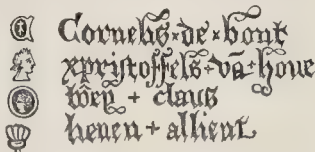 Cornelis × de × bont
xpristoffels + vā + houe
+ claus
heuen + allient